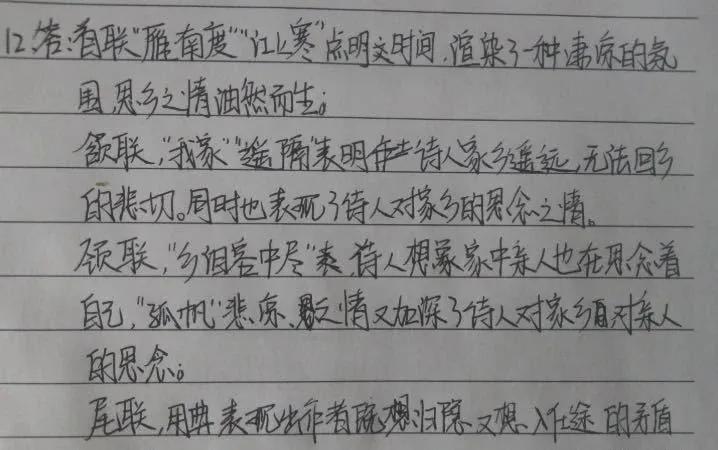 12.答：首联"雁南度""江上寒"点明交时间，渲染了一种凄凉的氛
围，思乡之情油然而生；
颔联，"我家""遥隔"表明诗人家乡遥远，无法回乡
的悲切。同时也表现了诗人对家乡的思念之情。
颈联，"乡泪客中尽"表 诗人想象家中亲人也在思念着
自己，"孤帆"悲凉、之情又加深了诗人对家乡对亲人
的思念。
尾联，用典表现出作者既想归隐又想入仕途的矛盾